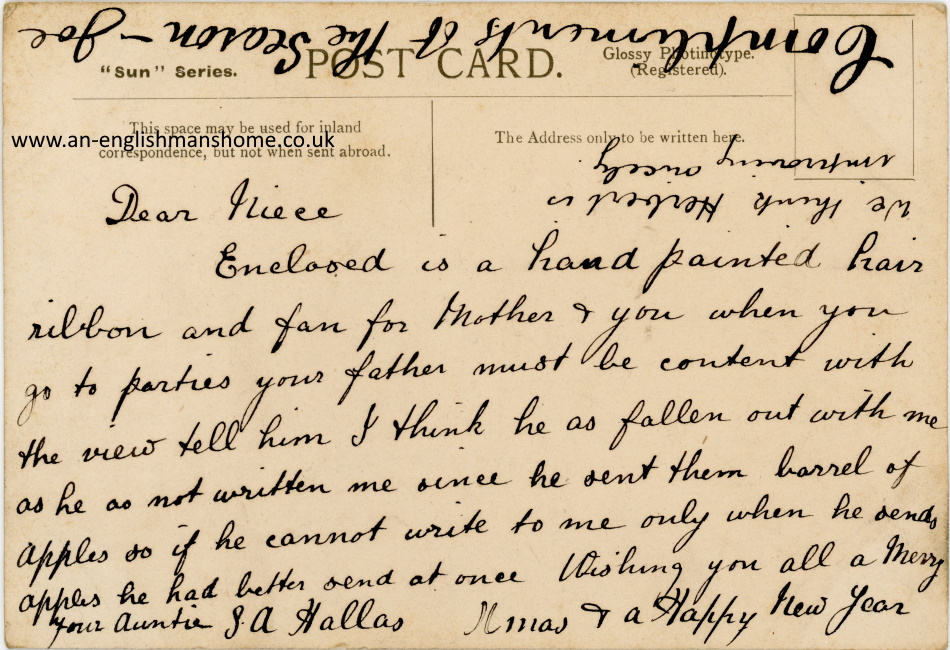 Compliments of the Season - Joe
"Sun" Series.
POST CARD.
Glossy Photinotype.
(Registered).
This space may be used for inland
correspondence, but not when sent abroad.
The Address only to be written here.
www.an-englishmanshome.co.uk
We think Herbert is
improving nicely
Dear Niece
Enclosed is a hand painted hair
ribbon and fan for Mother & you when you
go to parties your father must be content with
the view tell him I think he as fallen out with me
as he as not written me since he sent them barrel of
apples so if he cannot write to me only when he sends
apples he had better send at once Wishing you all a Merry
Xmas & a Happy New Year
your Auntie S. A Hallas